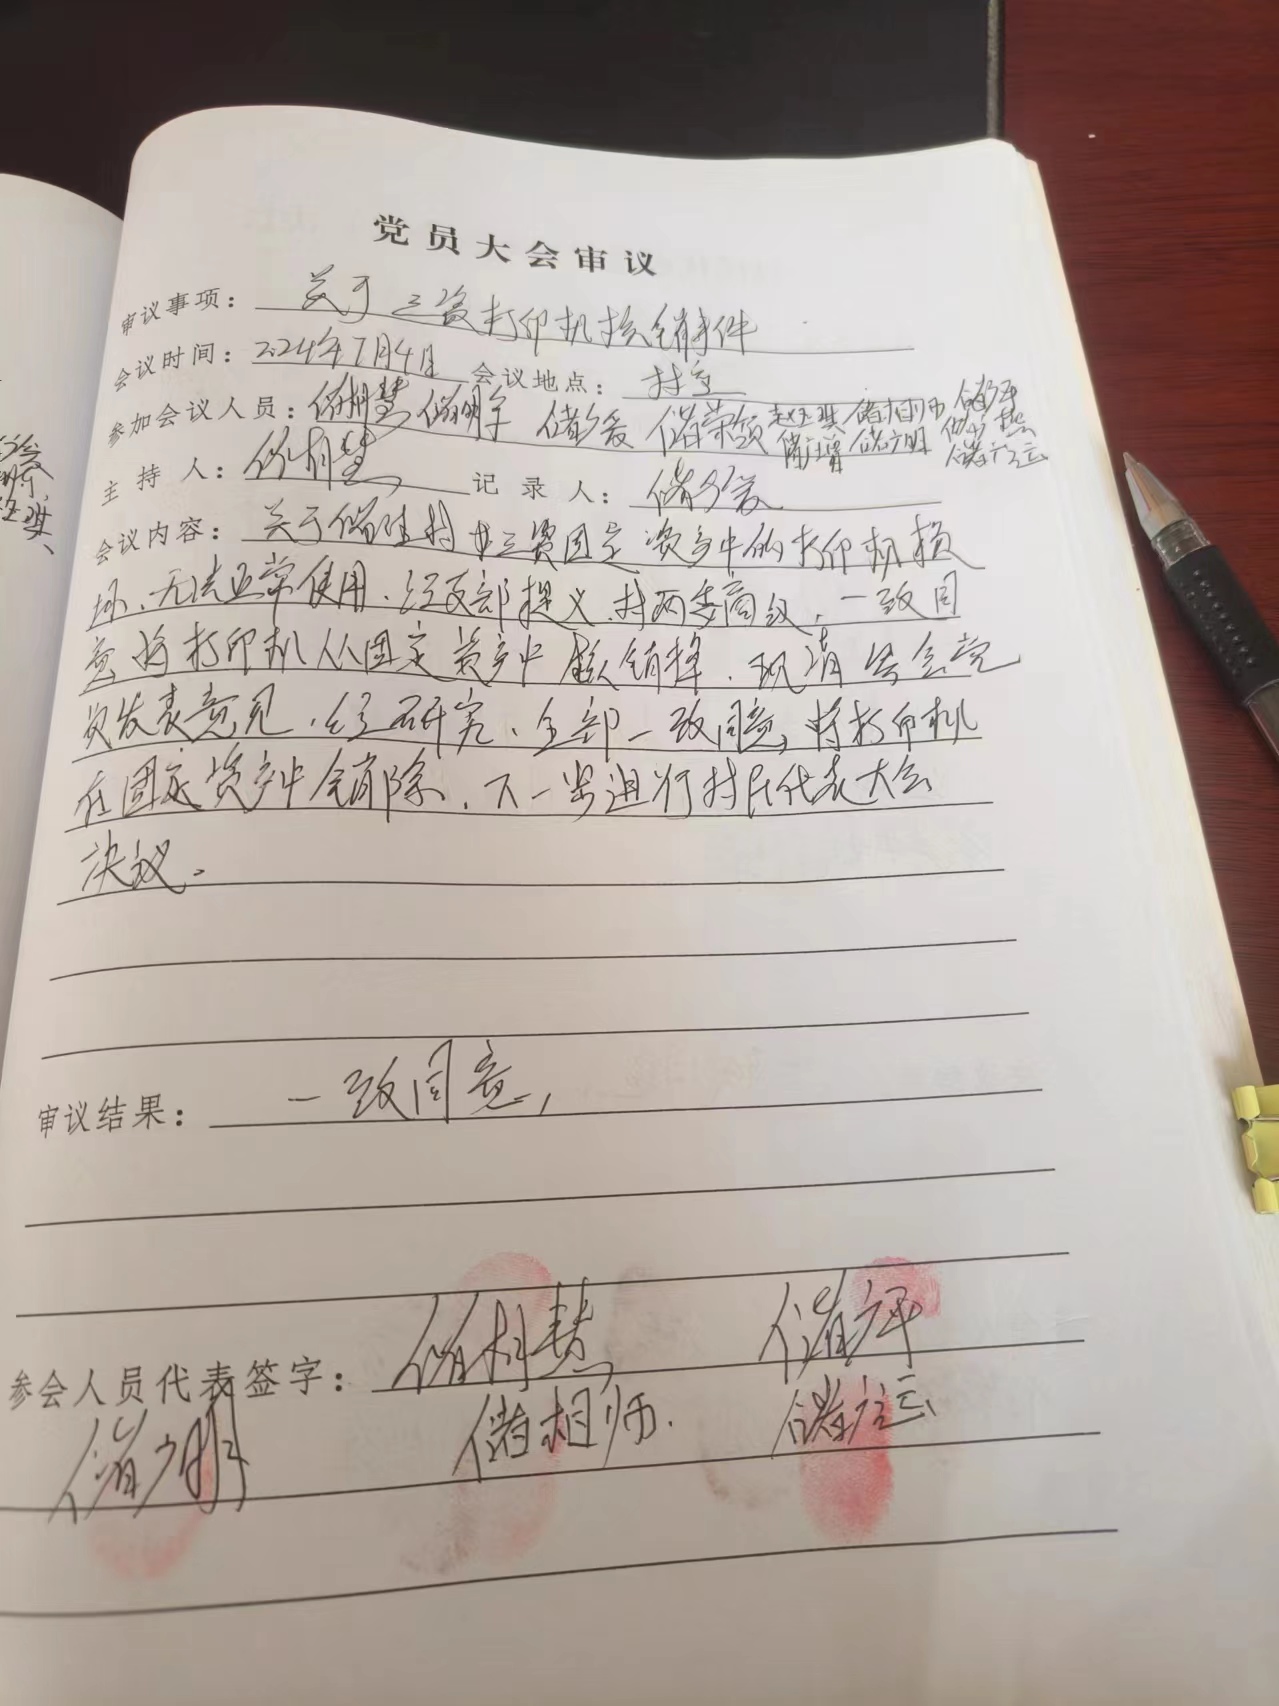 党员大会审议
审议事项： 关于三资打印机核销事件
会议时间： 2024年7月4日 会议地点： 村室
参加会议人员： 储相慧 储明 储 储荣领 赵玉琪 储相师 储评
储广明 储广运
主持人： 储相慧 记录人： 储
会议内容： 关于储 村 三资固定资产中的打印机损
坏、无法正常使用．经支部提义．村两委商议．一致同
意将打印机从固定资产中 销掉．现请 会党
员发表意见．经研究、全部一致同意，将打印机
在固定资产中销除．下一步进行村民代表大会
决议．
审议结果： 一致同意，
参会人员代表签字： 储相慧 储评
储广明 储相师． 储广运